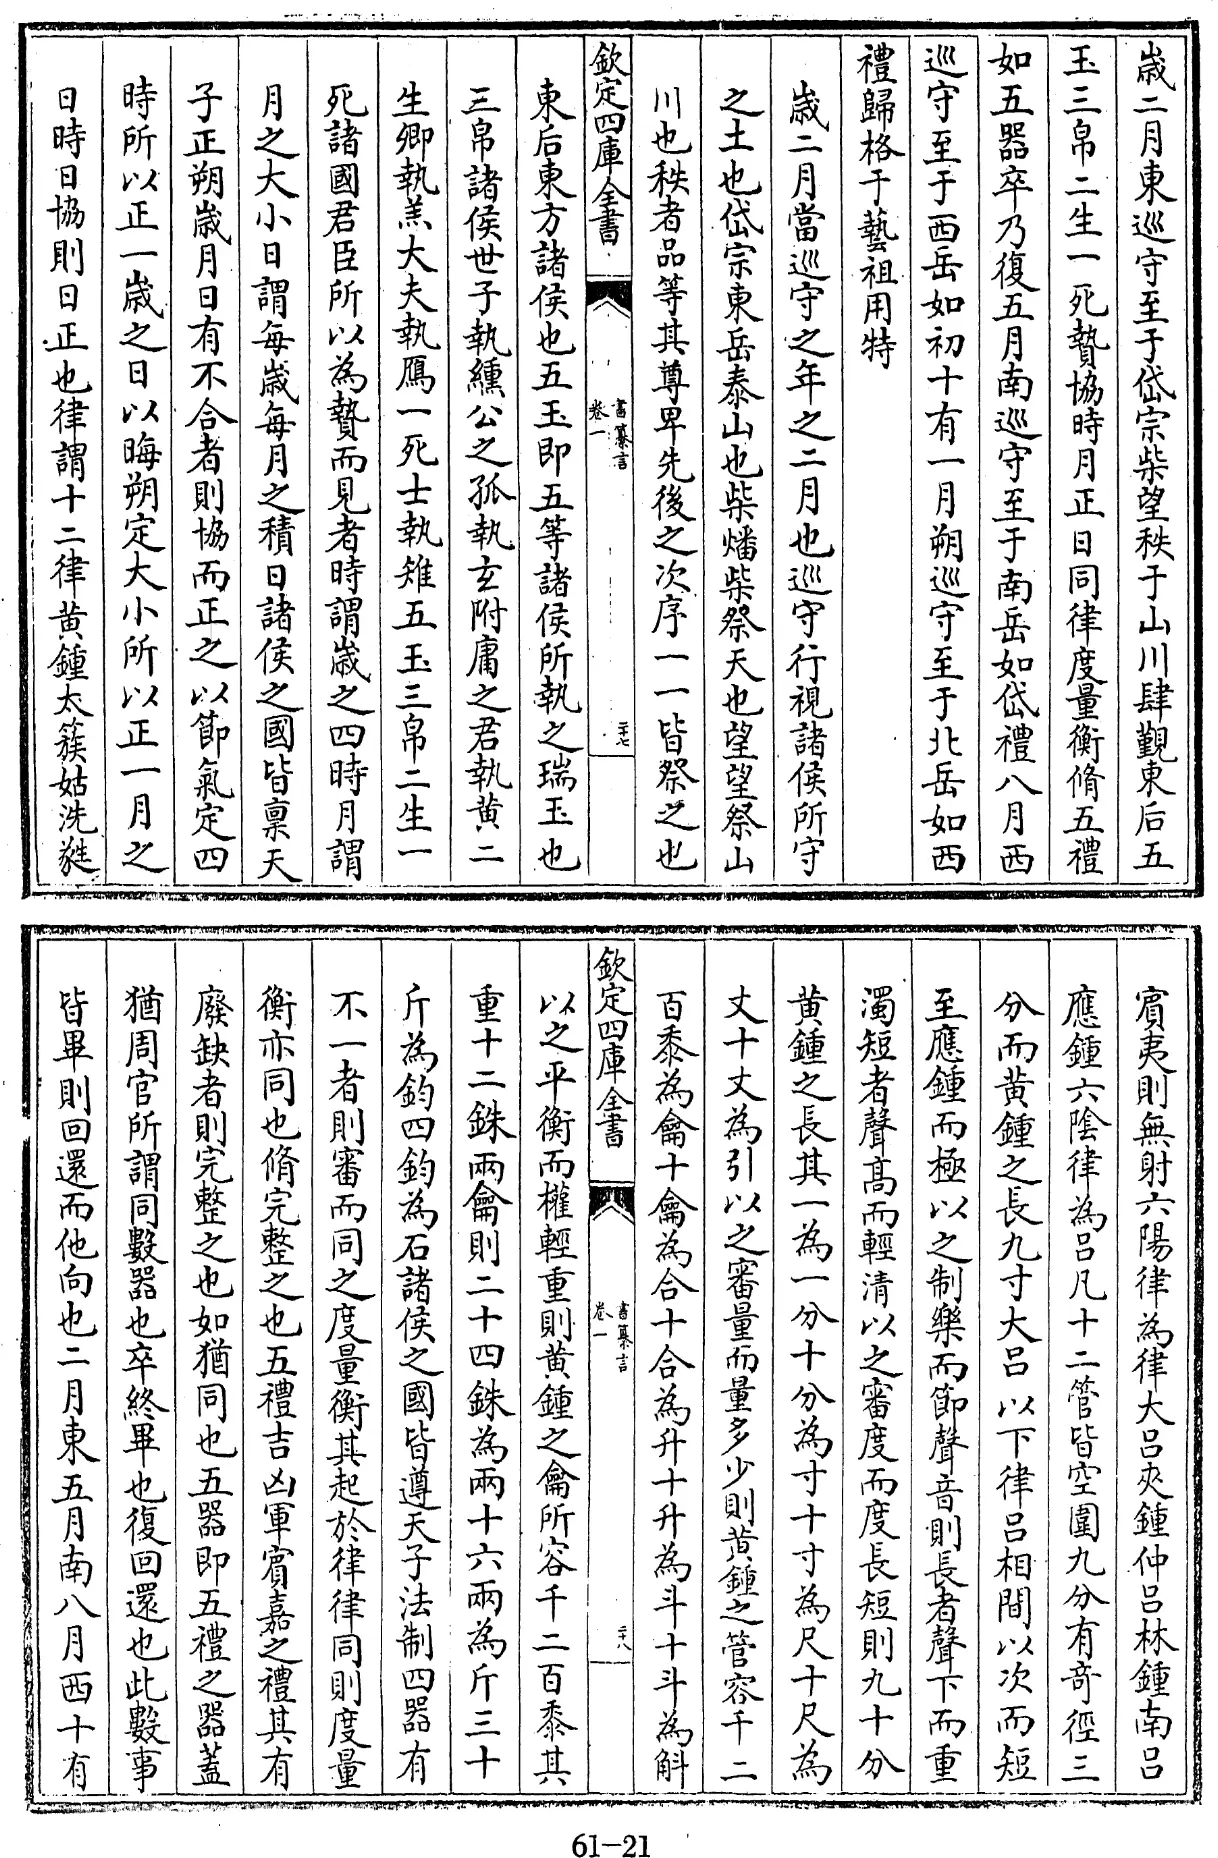 歳二月東巡守至于岱宗柴望秩于山川肆覲東后五
玉三帛二生一死贄協時月正日同律度量衡脩五禮
如五器卒乃復五月南巡守至于南岳如岱禮八月西
巡守至于西岳如初十有一月朔巡守至于北岳如西
禮歸格于藝祖用特
歳二月當巡守之年之二月也巡守行視諸侯所守
之土也岱宗東岳泰山也柴燔柴祭天也望望祭山
川也秩者品等其尊卑先後之次序一一皆祭之也
欽定四庫全書
書纂言
卷一
二十七
東后東方諸侯也五玉即五等諸侯所執之瑞玉也
三帛諸侯世子執纁公之孤執玄附庸之君執黄二
生卿執羔大夫執鴈一死士執雉五玉三帛二生一
死諸國君臣所以為贄而見者時謂歳之四時月謂
月之大小日謂每歳每月之積日諸侯之國皆稟天
子正朔歳月日有不合者則協而正之以節氣定四
時所以正一歳之日以晦朔定大小所以正一月之
日時日協則日正也律謂十二律黄鍾太簇姑洗蕤
賔夷則無射六陽律為律大呂夾鍾仲呂林鍾南呂
應鍾六陰律為呂凡十二管皆空圍九分有竒徑三
分而黄鍾之長九寸大呂以下律呂相間以次而短
至應鍾而極以之制樂而節聲音則長者聲下而重
濁短者聲髙而輕清以之審度而度長短則九十分
黄鍾之長其一為一分十分為寸十寸為尺十尺為
丈十丈為引以之審量而量多少則黄鍾之管容千二
百黍為龠十龠為合十合為升十升為斗十斗為斛
欽定四庫全書
書纂言
卷一
二十八
以之平衡而權輕重則黄鍾之龠所容千二百黍其
重十二銖兩龠則二十四銖為兩十六兩為斤三十
斤為鈞四鈞為石諸侯之國皆遵天子法制四器有
不一者則審而同之度量衡其起於律律同則度量
衡亦同也脩完整之也五禮吉凶軍賔嘉之禮其有
廢缺者則完整之也如猶同也五器即五禮之器蓋
猶周官所謂同數器也卒終畢也復回還也此數事
皆畢則回還而他向也二月東五月南八月西十有
61-21